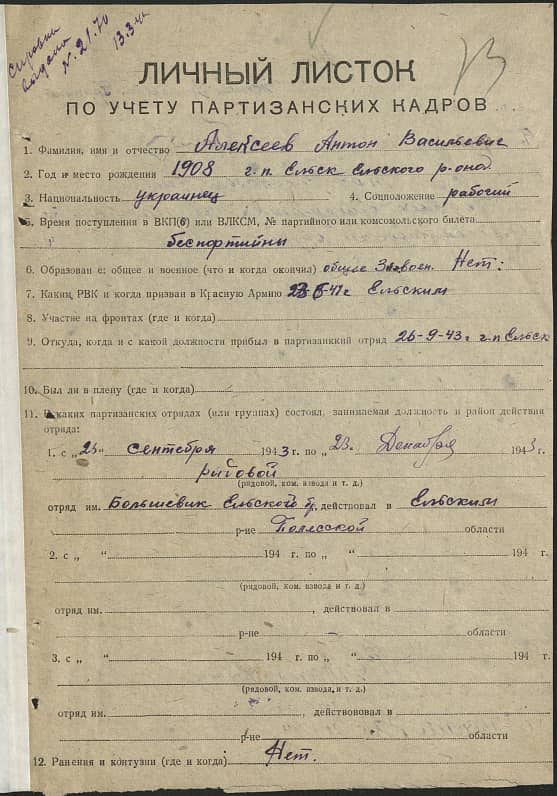 Справка
выдана
№ 21.70
13.3.
ЛИЧНЫЙ ЛИСТОК
ПО УЧЕТУ ПАРТИЗАНСКИХ КАДРОВ
1. Фамилия, имя и отчество Алексеев Антон Васильевич
2. Год и место рождения 1908 г.п. Ельск Ельского р-она
3. Национальность украинец 4. Соцположение рабочий
5. Время поступления в ВКП(б) или ВЛКСМ, № партийного или комсомольского билета
беспортийны
6. Образован е: общее и военное (что и когда окончил) общее 3 воен. Нет:
7. Каким РВК и когда призван в Красную Армию 41г Ельским
8. Участие на фронтах (где и когда)
9. Откуда, когда и с какой должности прибыл в партизанкий отряд 26-9-43г г.п Ельск
10. Был ли в плену (где и когда)
11. В каких партизанских отрядах (или группах) состоял, занимаемая должность и район действия
отряда:
1. с „ “ сентебря 1943 г. по „23 “ Декабря 1943 г.
ридовой
(рядовой, ком. взвода и т. д.)
отряд им. Большевик Ельского бр. действовал в Ельским
р-не Полесской области
2. с „ “ 194 г. по „ “ 194 г.
(рядовой, ком. взвода и т. д.)
отряд им. , действовал в
р-не области
3. с „ “ 194 г. по „ “ 194 г.
(рядовой, ком. взвода, и т. д.)
отряд им. , действовал в
р-не области
12. Ранения и контузии (где и когда) Нет.